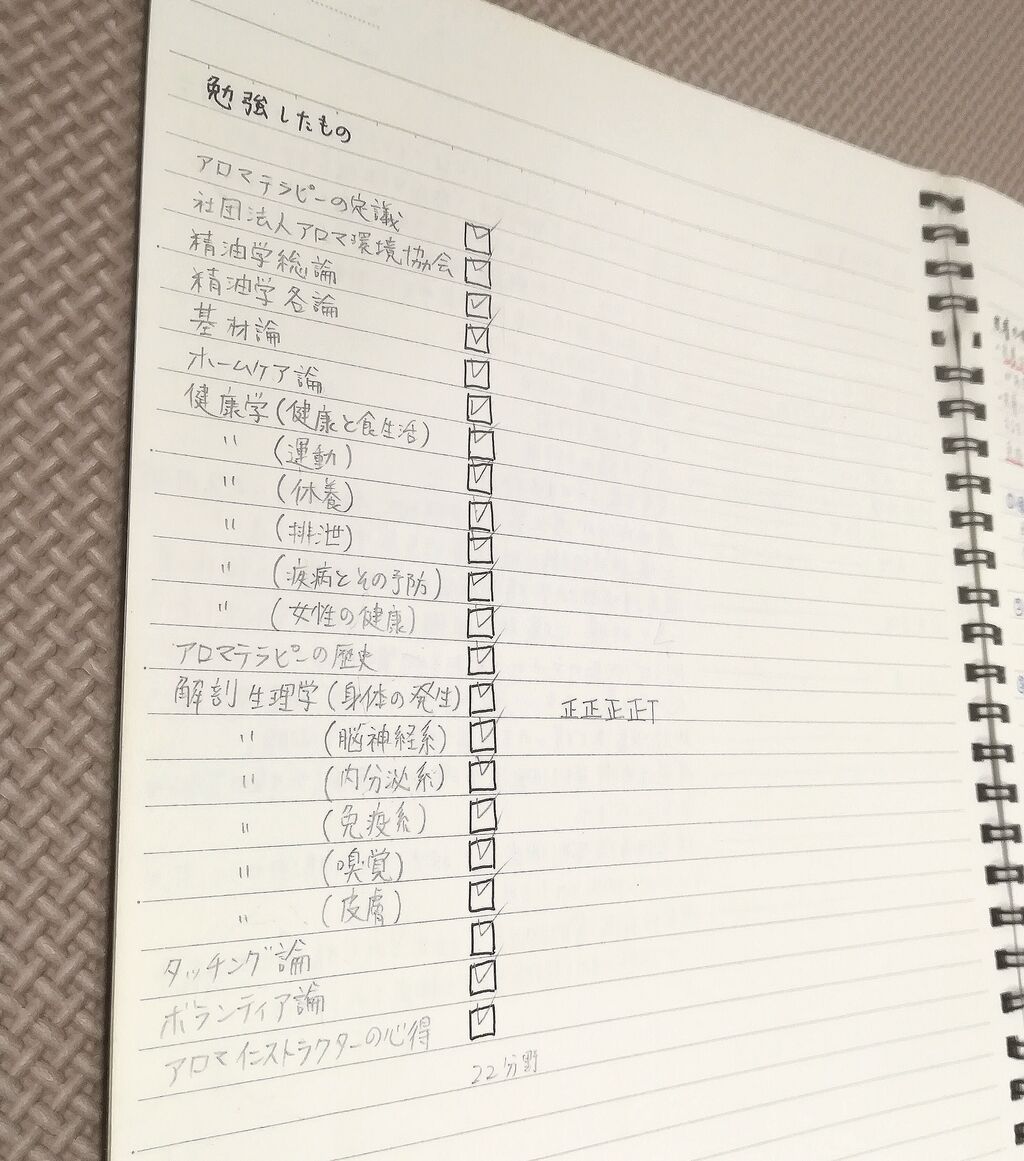 勉強したもの
アロマテラピーの定議
社団法人アロマ環境協会
精油学総論
精油学各論
基材論
ホームケア論
健康学(健康と食生活)
〃 (運動)
〃 (休養)
〃 (排泄)
〃 (疾病とその予防)
〃 (女性の健康)
アロマテラピーの歴史
解剖生理学(身体の発生)
正正正正T
〃 (脳神経系)
〃 (内分泌系)
〃 (免疫系)
〃 (嗅覚)
〃 (皮膚)
タッチング論
ボランティア論
アロマインストラクターの心得
22分野